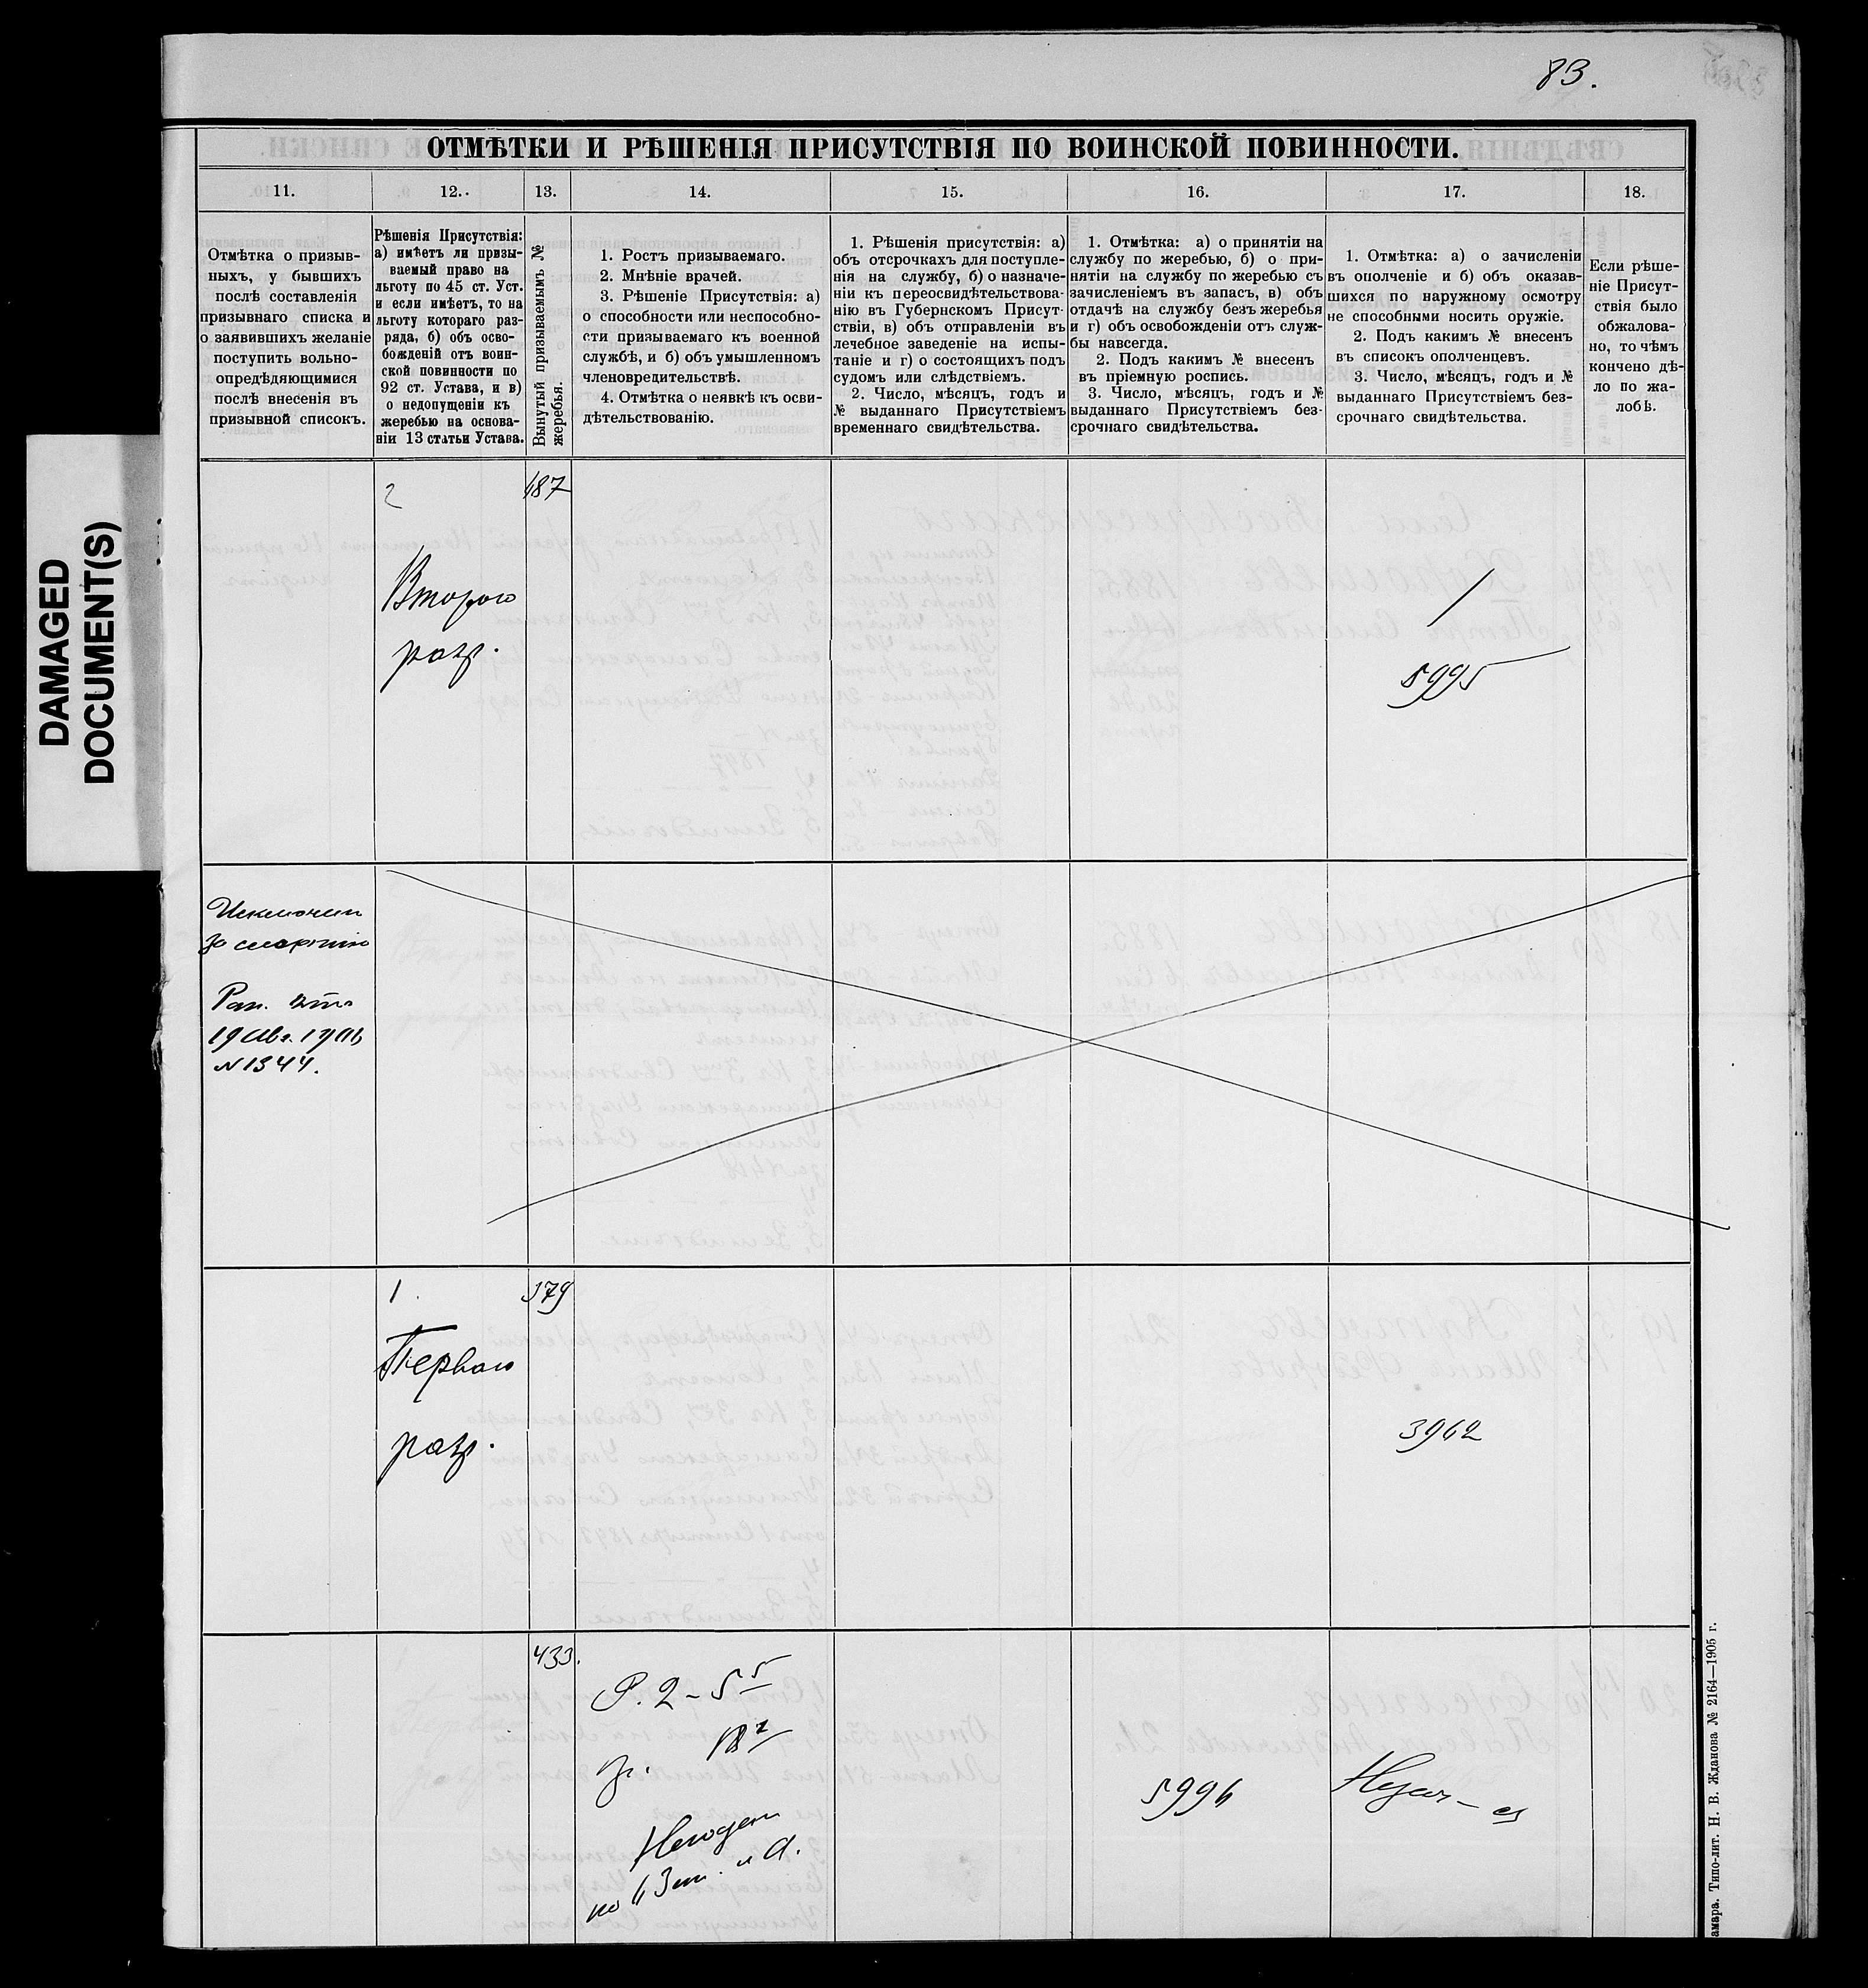 83.
DAMAGED
DOCUMENT(S)
ОТМѢТКИ И РѢШЕНІЯ ПРИСУТСТВІЯ ПО ВОИНСКОЙ ПОВИННОСТИ.
11.
12.
13.
14.
15.
16.
17.
18.
Отмѣтка о призыв-
ныхъ, у бывшихъ
послѣ составленія
призывнаго списка и
о заявившихъ желаніе
поступить вольно-
опредѣдяющимися
послѣ внесенія въ
призывной списокъ.
Рѣшенія Присутствія:
а) имѣетъ ли призы-
ваемый право на
льготу по 45 ст. Уст.
и если имѣетъ, то на
льготу котораго раз-
ряда, б) объ осво-
божденій отъ воин-
ской повинности по
92 ст. Устава, и в)
о недопущеніи къ
жеребью на основа-
ніи 13 статьи Устава.
Вынутый призываемымъ №
жеребья.
1. Ростъ призываемаго.
2. Мнѣніе врачей.
3. Рѣшеніе Присутствія: а)
о способности или неспособно-
сти призываемаго къ военной
службѣ, и б) объ умышленномъ
членовредительствѣ.
4. Отмѣтка о неявкѣ къ осви-
дѣтельствованію.
1. Рѣшенія присутствія: а)
объ отсрочкахъ для поступле-
нія на службу, б) о назначе-
ніи къ переосвидѣтельствова-
нію въ Губернскомъ Присут-
ствіи, в) объ отправленіи въ
лечебное заведеніе на испы-
таніе и г) о состоящихъ подъ
судомъ или слѣдствіемъ.
2. Число, мѣсяцъ, годъ и
№ выданнаго Присутствіемъ
временнаго свидѣтельства.
1. Отмѣтка: а) о принятіи на
службу по жеребью, б) о при-
нятіи на службу по жеребью съ
зачисленіемъ въ запасъ, в) объ
отдачѣ на службу безъ жеребья
и г) объ освобожденіи отъ служ-
бы навсегда.
2. Подъ какимъ № внесенъ
въ пріемную роспись.
3. Число, мѣсяцъ, годъ и №
выданнаго Присутствіемъ без-
срочнаго свидѣтельства.
1. Отмѣтка: а) о зачисленіи
въ ополченіе и б) объ оказав-
шихся по наружному осмотру
не способными носить оружіе.
2. Подъ какимъ № внесенъ
въ списокъ ополченцевъ.
3. Число, мѣсяцъ, годъ и №
выданнаго Присутствіемъ без-
срочнаго свидѣтельства.
Если рѣше-
ніе Присут-
ствія было
обжалова-
но, то чѣмъ
кончено дѣ-
ло по жа-
лобѣ.
2
187
Второго
разр.
5995
Исключен
за смертію
19 Авг.
№1344.
1
379
Перваго
разр.
3962
433.
Р. 2 – 5 5
Негоден
5996
амара. Типо-лит. Н. В. Жданова № 2164—1905 г.